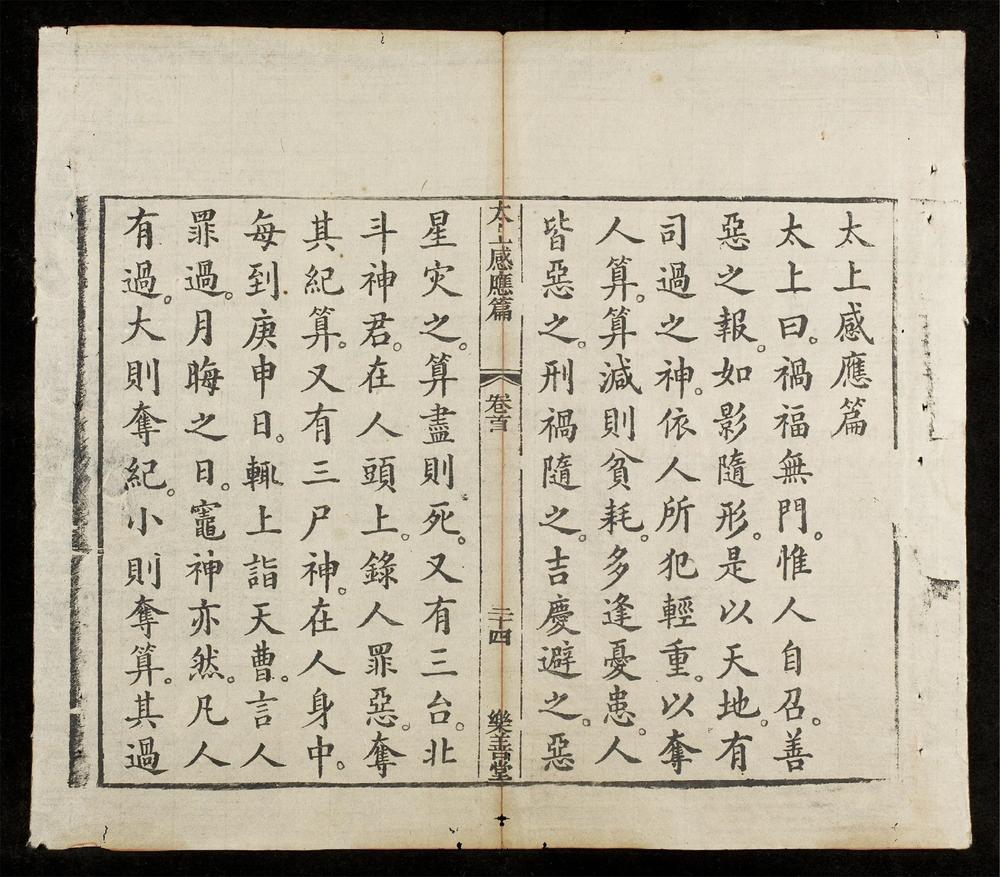 太上感應篇
太上曰。禍福無門。惟人自召。善
惡之報。如影隨形。是以天地。有
司過之神。依人所犯輕重。以奪
人算。算減則貧耗。多逢憂患。人
皆惡之。刑禍隨之。吉慶避之。惡
太上感應篇 卷首 二十四 樂善堂
星灾之。算盡則死。又有三台。北
斗神君。在人頭上。錄人罪惡。奪
其紀算。又有三尸神。在人身中。
每到庚申日。輒上詣天曹。言人
罪過。月晦之日。竈神亦然。凡人
有過。大則奪紀。小則奪算。其過